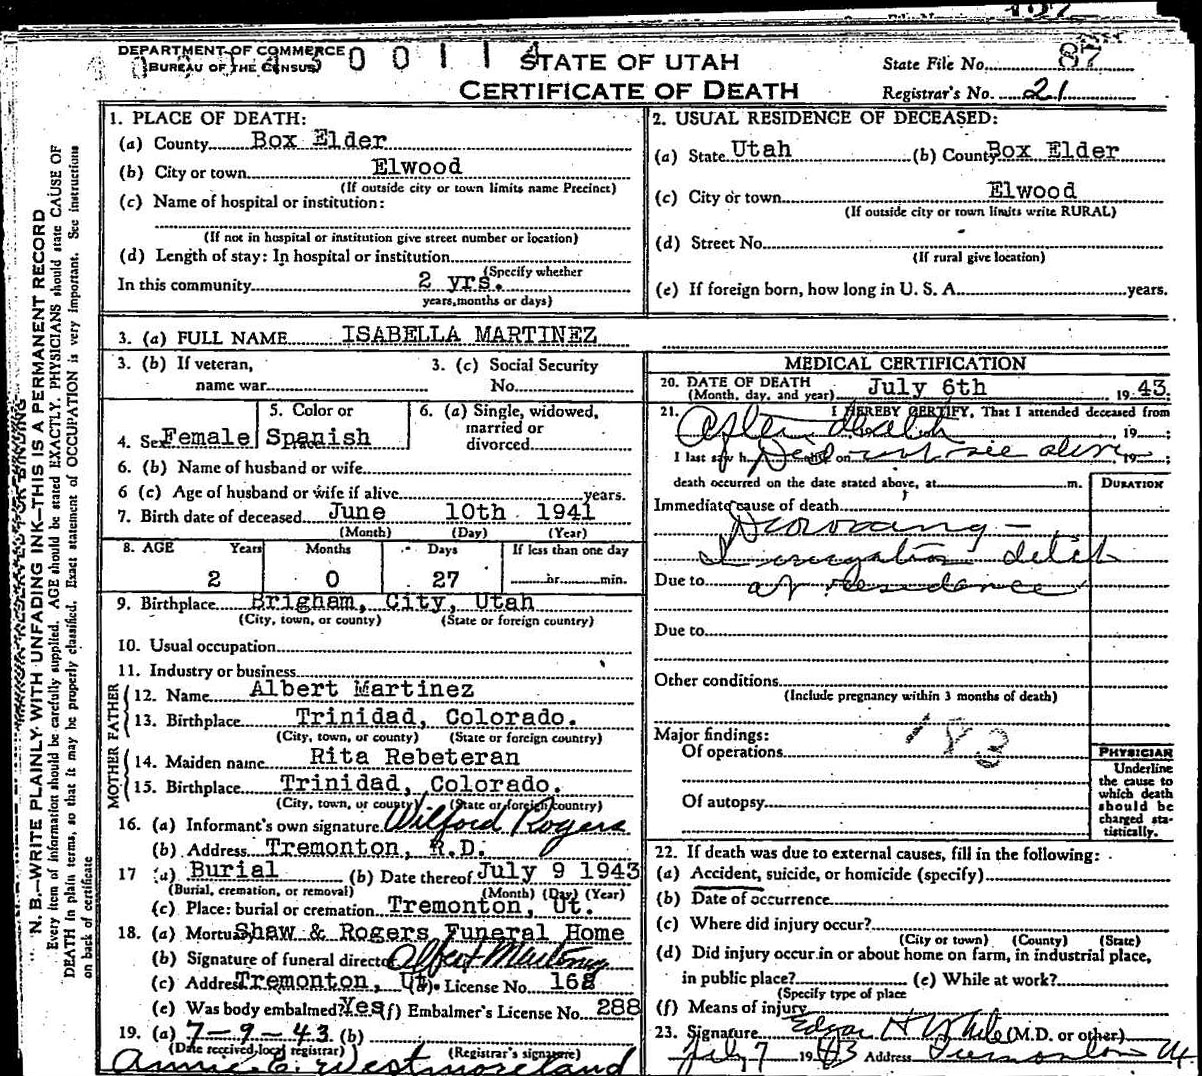 DEPARTMENT OF COMMERCE
BUREAU OF THE CENSUS
0 0 1 1 4
STATE OF UTAH
CERTIFICATE OF DEATH
State File No. 87
Registrar's No. 21
N. B.—WRITE PLAINLY WITH UNFADING INK—THIS IS A PERMANENT RECORD
Every item of information should be carefully supplied. AGE should be stated EXACTLY. PHYSICIANS should state CAUSE OF
DEATH in plain terms, so that it may be properly classified. Exact statement of OCCUPATION is very important. See instructions
on back of certificate
1. PLACE OF DEATH:
(a) County Box Elder
(b) City or town Elwood
(If outside city or town limits name Precinct)
(c) Name of hospital or institution:
(If not in hospital or institution give street number or location)
(d) Length of stay: In hospital or institution
(Specify whether
In this community 2 yrs.
years, months or days)
2. USUAL RESIDENCE OF DECEASED:
(a) State Utah (b) County Box Elder
(c) City or town Elwood
(If outside city or town limits write RURAL)
(d) Street No.
(If rural give location)
(e) If foreign born, how long in U. S. A. years.
3. (a) FULL NAME ISABELLA MARTINEZ
3. (b) If veteran, name war
3. (c) Social Security No.
4. Sex Female
5. Color or Spanish
6. (a) Single, widowed, married or divorced
6. (b) Name of husband or wife
6 (c) Age of husband or wife if alive years.
7. Birth date of deceased June 10th 1941
(Month) (Day) (Year)
8. AGE Years Months Days If less than one day
2 0 27 hr. min.
9. Birthplace Brigham, City, Utah
(City, town, or county) (State or foreign country)
10. Usual occupation
11. Industry or business
FATHER
12. Name Albert Martinez
13. Birthplace Trinidad, Colorado.
(City, town, or county) (State or foreign country)
MOTHER
14. Maiden name Rita Rebeteran
15. Birthplace Trinidad, Colorado.
(City, town, or county) (State or foreign country)
16. (a) Informant's own signature Wilford Rogers
(b) Address Tremonton, R.D.
17 (a) Burial (b) Date thereof July 9 1943
(Burial, cremation, or removal) (Month) (Day) (Year)
(c) Place: burial or cremation Tremonton, Ut.
18. (a) Mortuary Shaw & Rogers Funeral Home
(b) Signature of funeral director Albert Martinez
(c) Address Tremonton, Ut. License No. 168
(e) Was body embalmed? Yes (f) Embalmer's License No. 288
19. (a) 7-9-43 (b)
(Date received local registrar) (Registrar's signature)
Annie C. Westmoreland
MEDICAL CERTIFICATION
20. DATE OF DEATH July 6th 1943.
(Month, day, and year)
21. I HEREBY CERTIFY, That I attended deceased from
After death, 19 ;
I last saw h alive on 19 ;
Did not see alive
death occurred on the date stated above, at m.
DURATION
Immediate cause of death
Drowning -
Irrigation ditch
Due to at residence
Due to
Other conditions
(Include pregnancy within 3 months of death)
Major findings:
Of operations
183
Of autopsy
PHYSICIAN
Underline
the cause to
which death
should be
charged sta-
tistically.
22. If death was due to external causes, fill in the following:
(a) Accident, suicide, or homicide (specify)
(b) Date of occurrence
(c) Where did injury occur?
(City or town) (County) (State)
(d) Did injury occur in or about home on farm, in industrial place,
in public place? (e) While at work?
(Specify type of place
(f) Means of injury
23. Signature Edgar H White (M.D. or other)
July 7 1943 Address Tremonton Ut